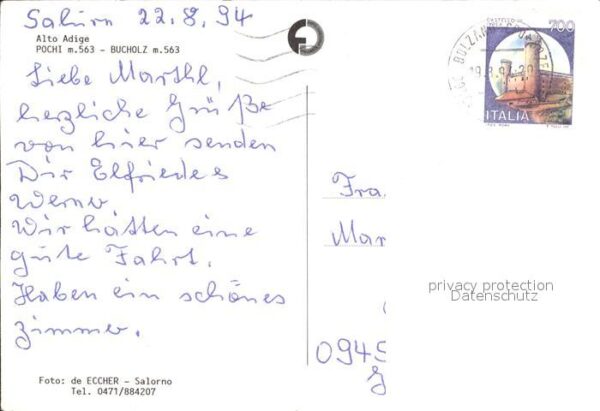 Salurn 22.8.94
Alto Adige
POCHI m.563 - BUCHOLZ m.563
Liebe Marthl,
herzliche Grüße
von hier senden
Dir Elfriede &
Werner
Wir hatten eine
gute Fahrt.
Haben ein schönes
Zimmer.
Foto: de ECCHER - Salorno
Tel. 0471/884207
700
ITALIA
Fra
Mar
privacy protection
Datenschutz